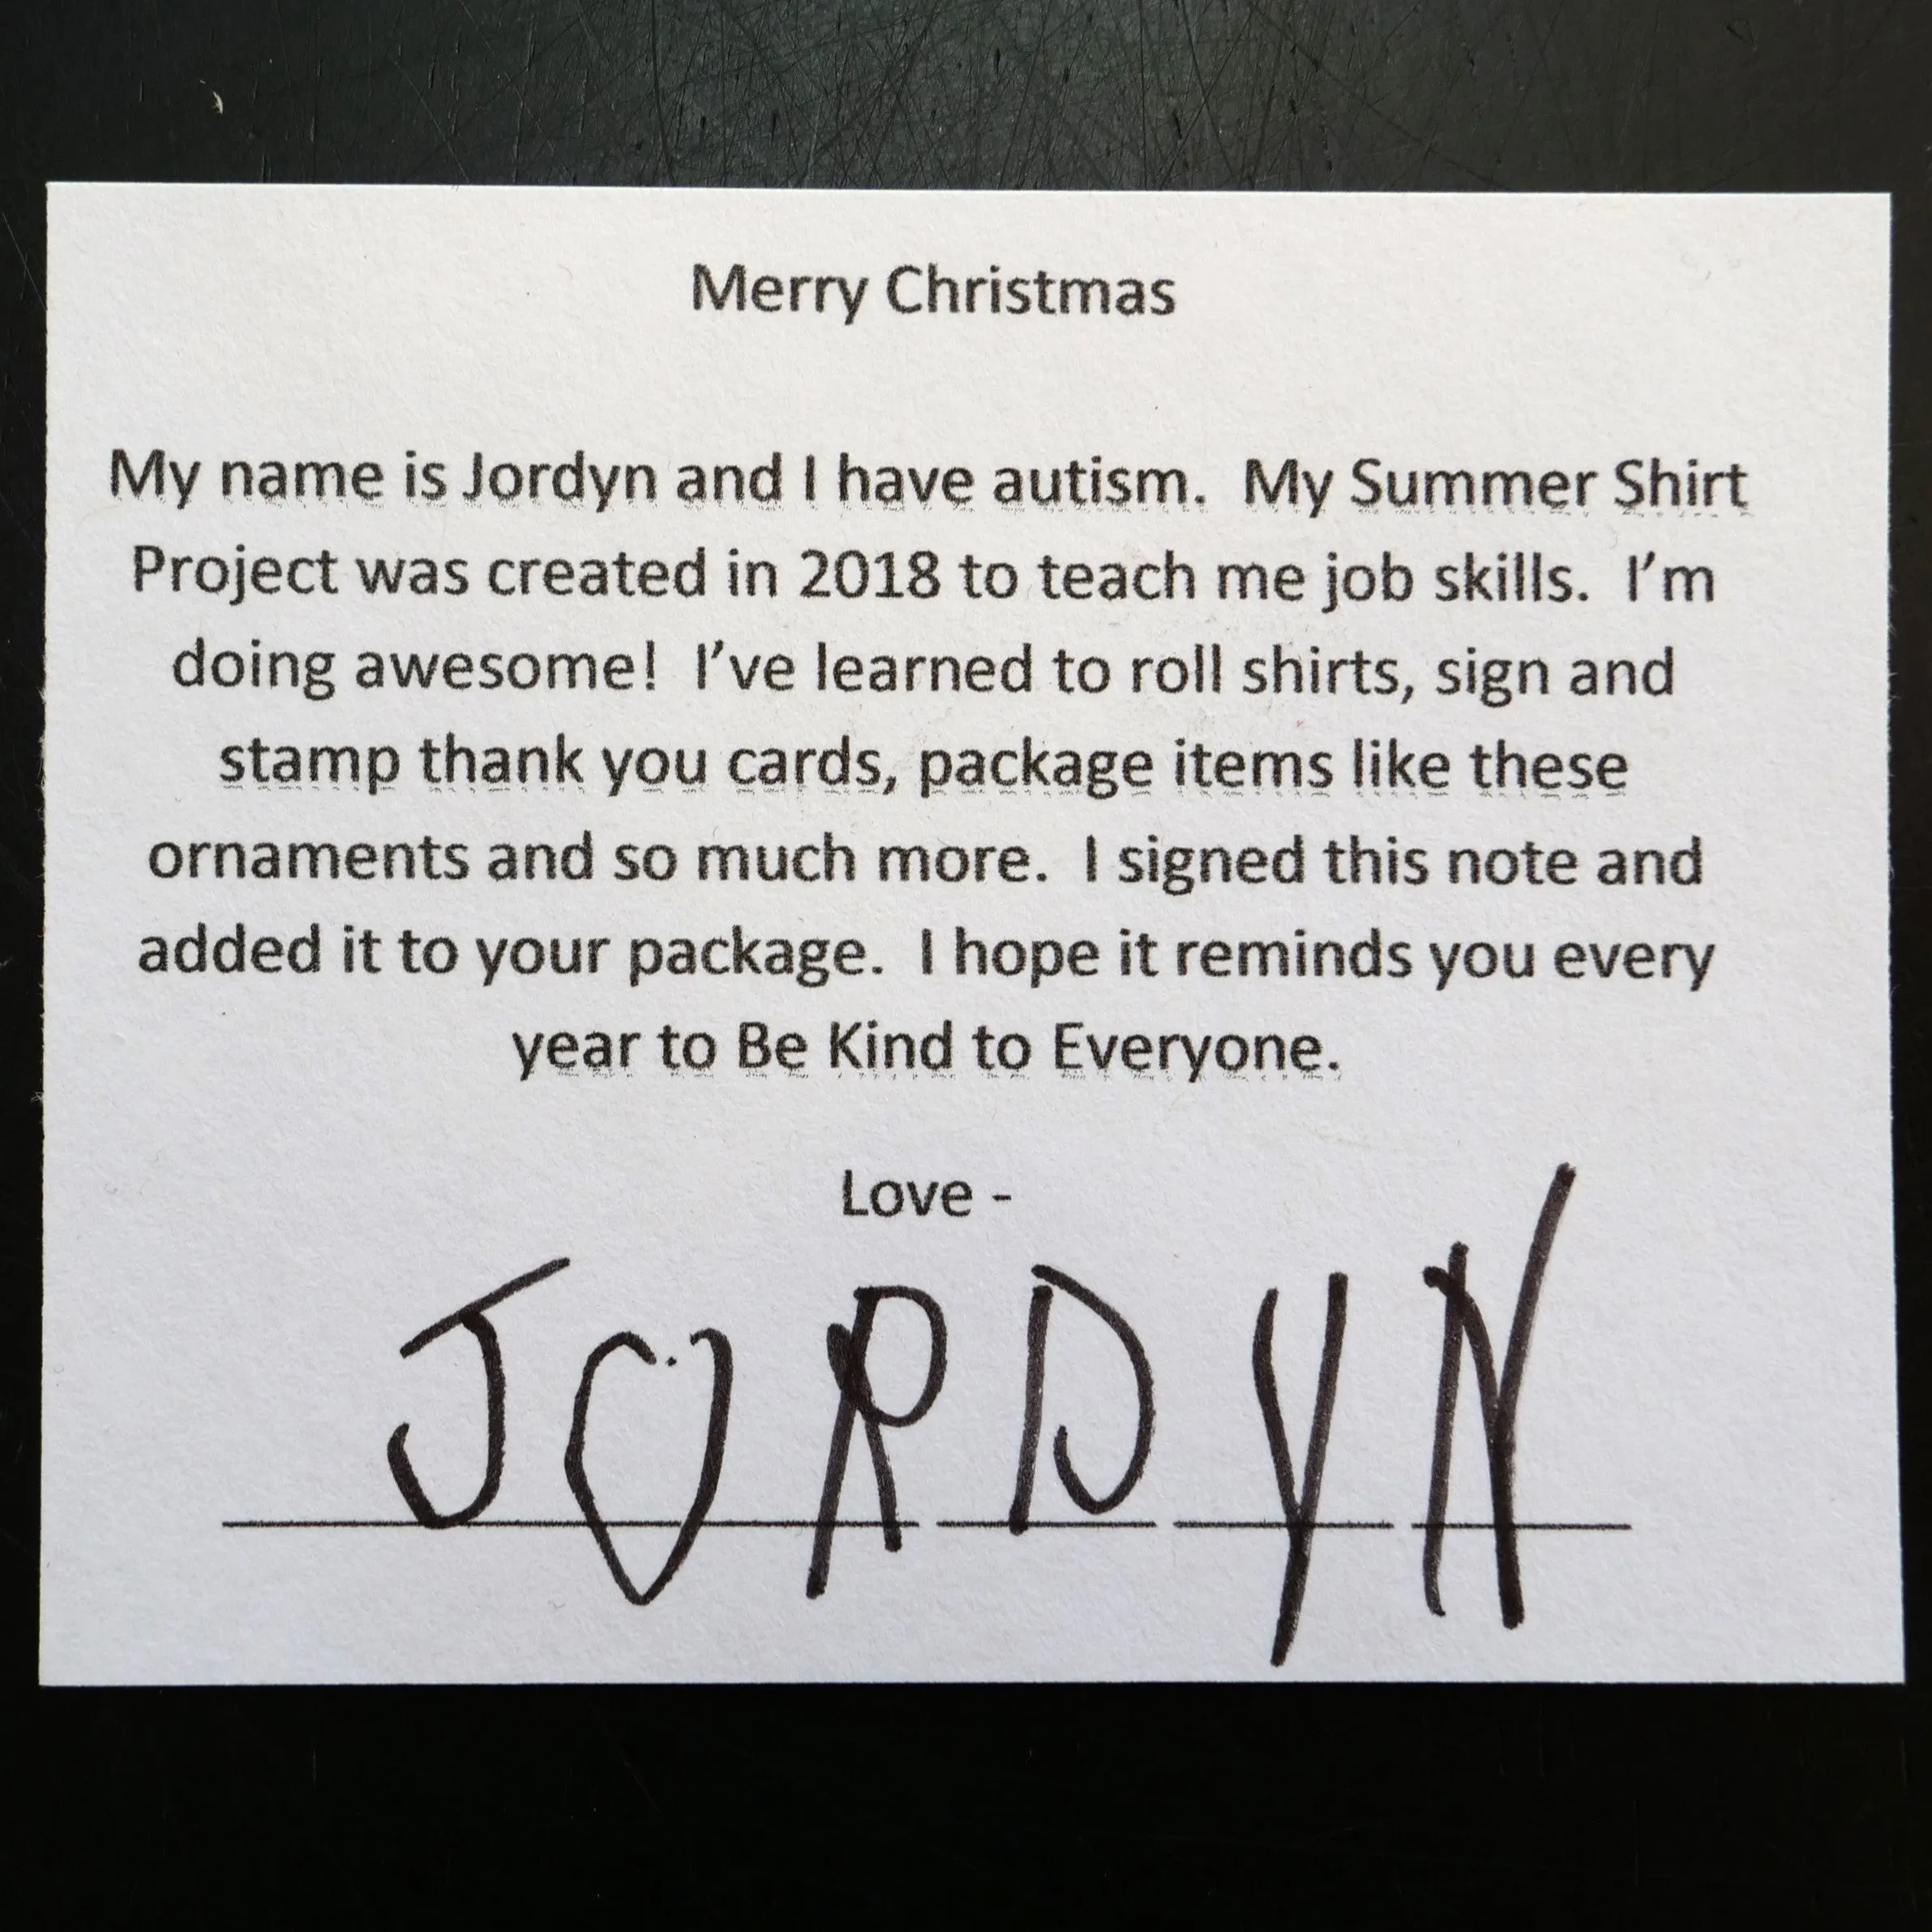 Merry Christmas
My name is Jordyn and I have autism.  My Summer Shirt
Project was created in 2018 to teach me job skills.  I’m
doing awesome!  I’ve learned to roll shirts, sign and
stamp thank you cards, package items like these
ornaments and so much more.  I signed this note and
added it to your package.  I hope it reminds you every
year to Be Kind to Everyone.
Love -
JORDYN